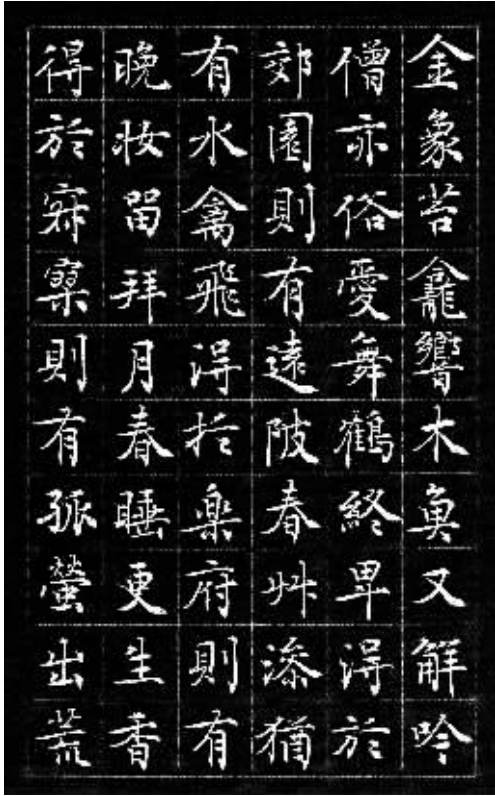 金象苔龕響木魚又解吟
僧亦俗愛舞鶴終卑淂於
郊園則有遠陂春艸深猶
有水禽飛淂扵樂府則有
晚妝畱拜月春睡更生香
得於寂寞則有孤螢出荒